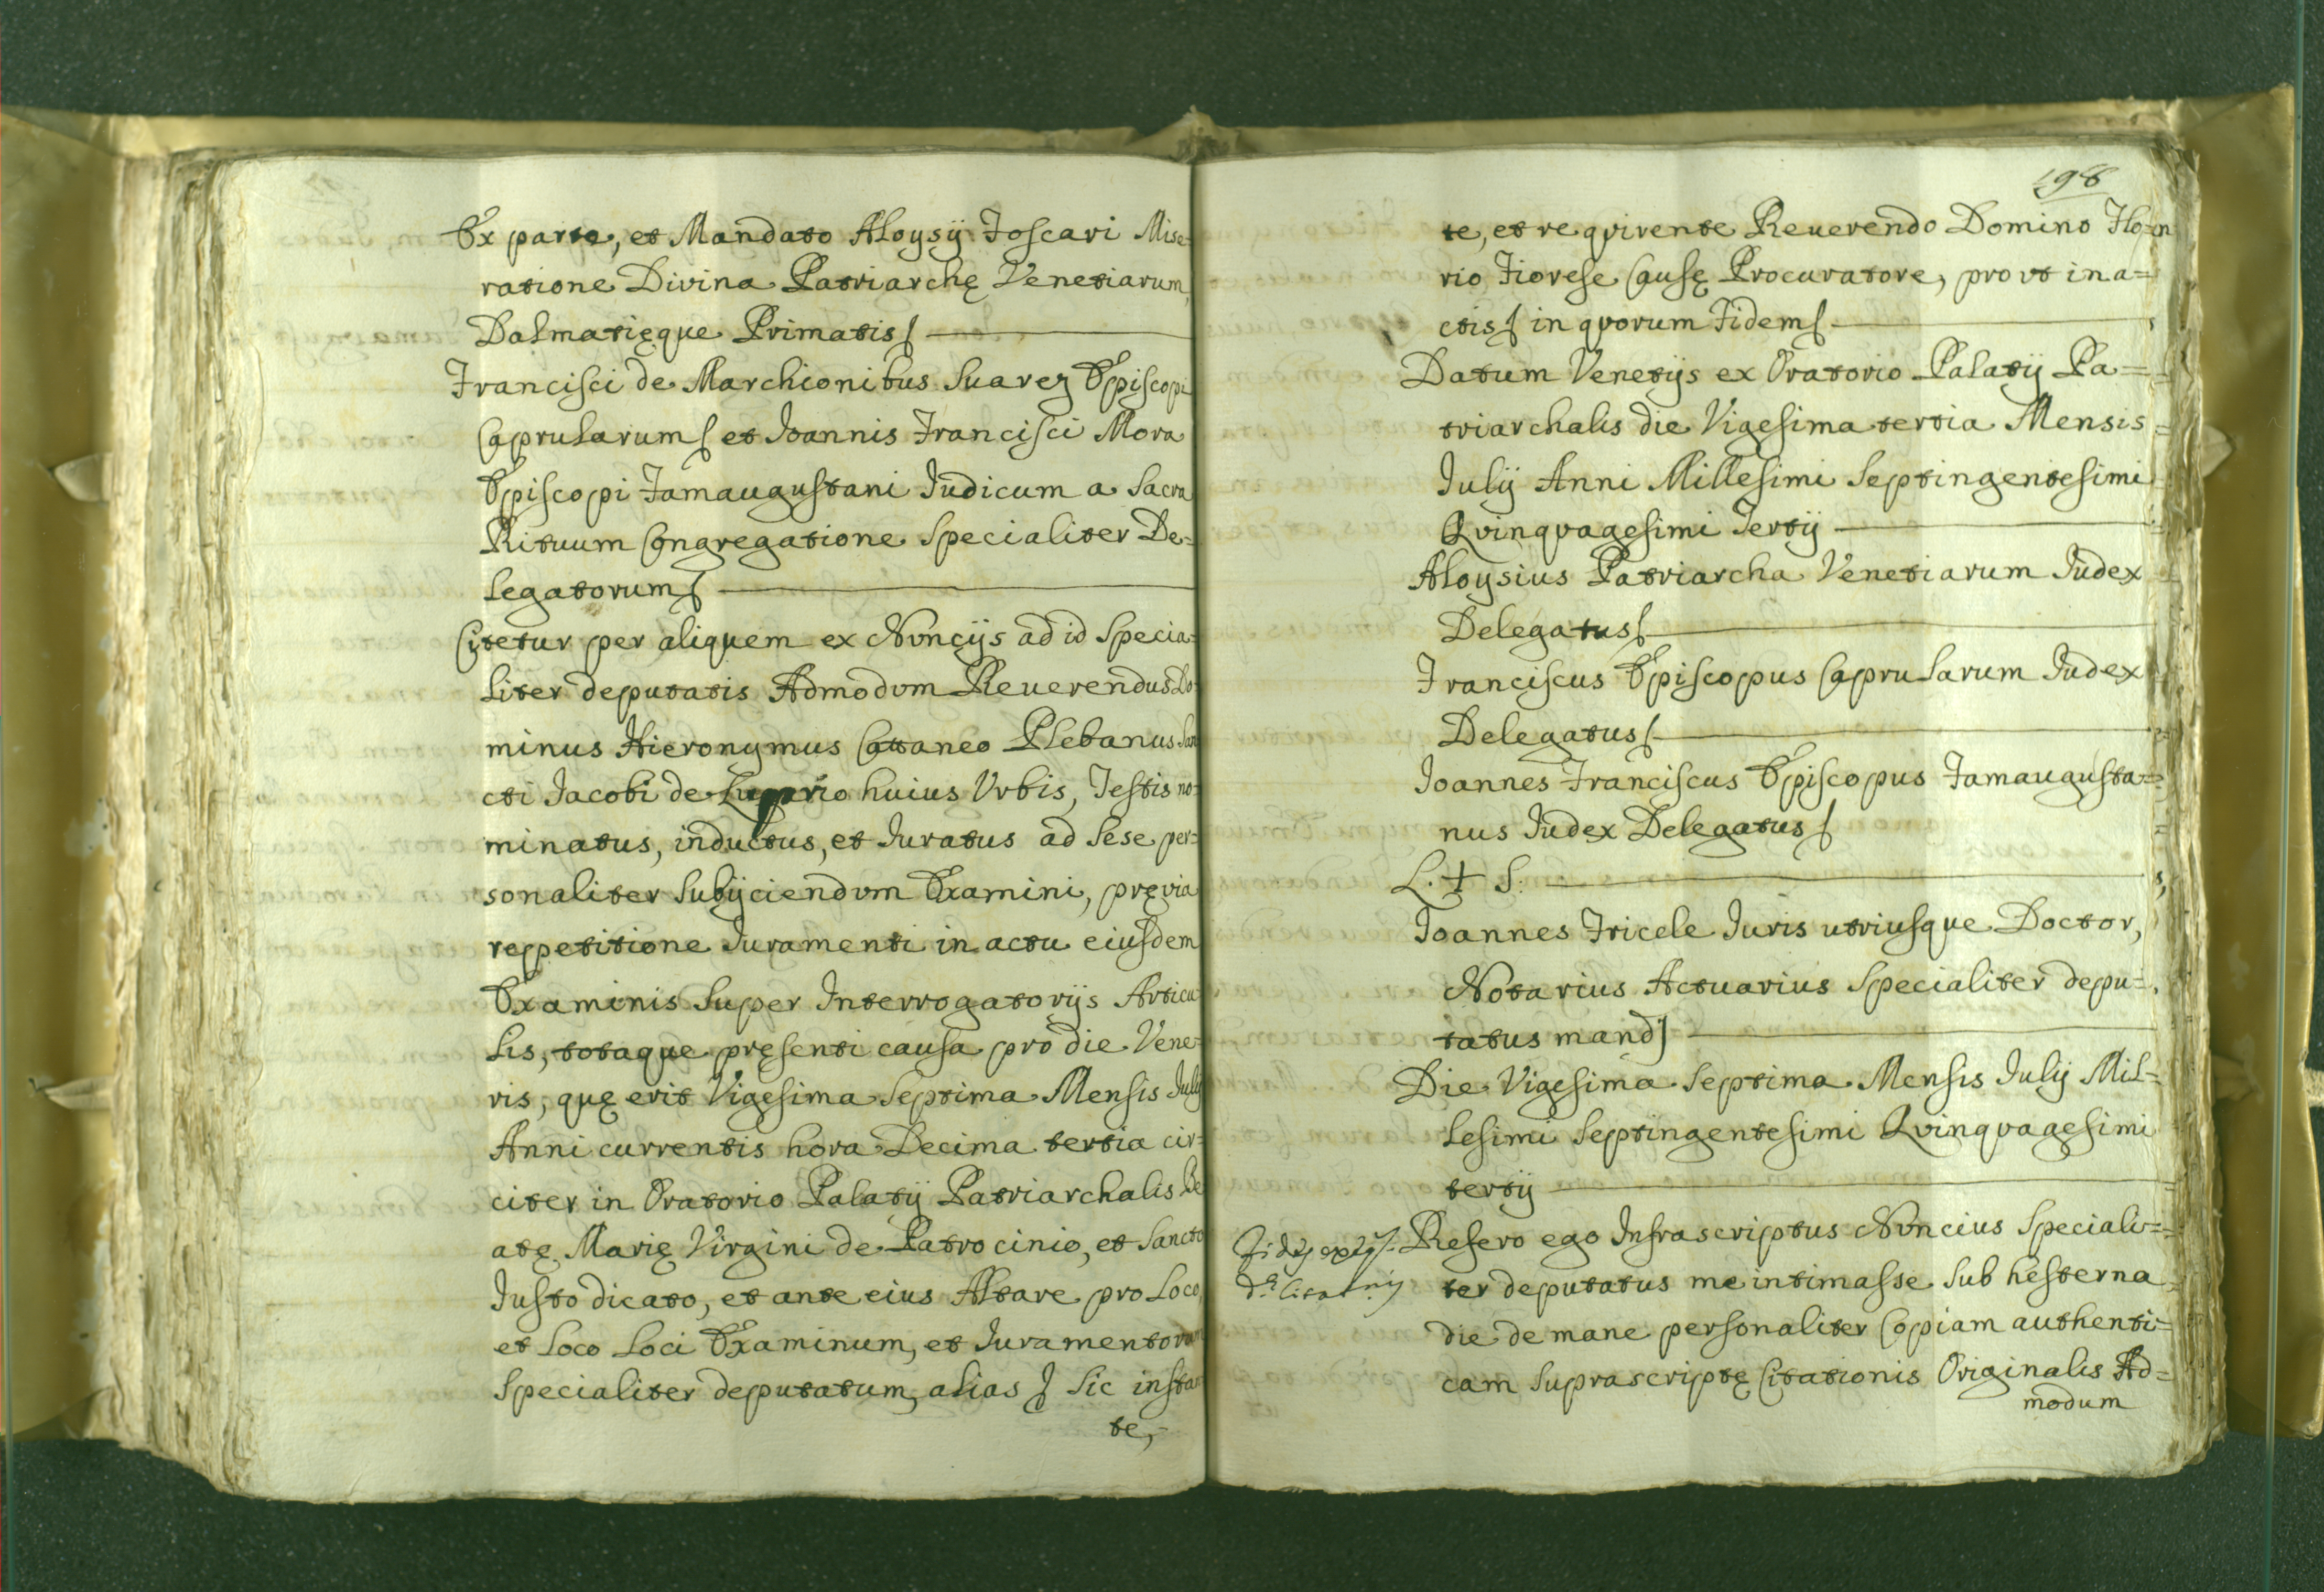 Ex parte, et Mandato Aloysij Foscari Mise-
ratione Divina Patriarchę Venetiarum,
Dalmatięque Primatis
Francisci de Marchionibus Suarez Episcopi
Caprularum et Ioannis Francisci Mora
Episcopi Famaugustani Iudicum a Sacra
Rituum Congregatione Specialiter De-
legatorum
Citetur per aliquem ex Nvncijs ad id Specia-
liter deputatis Admodvm Reuerendus Do-
minus Hieronymus Cattaneo Plebanus San
cti Iacobi de Luprio huius Vrbis, Testis no-
minatus, inductus, et Iuratus ad Sese per-
sonaliter Subijciendvm Examini, pręvia
reppetitione Iuramenti in actu eiusdem
Examinis Super Interrogatorijs Articu
lis, totaque pręsenti causa pro die Vene-
ris, quę erit Vigesima Septima Mensis Iulij
Anni currentis hora Decima tertia cir-
citer in Oratorio Palatij Patriarchalis Be
atę Marię Virgini de Patrocinio, et Sancto
Iusto dicato, et ante eius Altare pro Loco,
et Loco Loci Examinum, et Iuramentorum
Specialiter deputatum, alias Sic instan
te,
198
te, et reqvirente Reuerendo Domino
rio Fiorese Causę Procuratore, provt in a=
ctis in qvorum Fidem
Datum Venetijs ex Oratorio Palatij Pa=
triarchalis die Vigesima tertia Mensis
Iulij Anni Millesimi Septingentesimi
Qvinqvagesimi Tertij
Aloysius Patriarcha Venetiarum Iudex
Delegatus
Franciscus Episcopus Caprularum Iudex
Delegatus
Ioannes Franciscus Episcopus Famaugusta=
nus Iudex Delegatus
L. + S.
Ioannes Fricele Iuris utriusque Doctor,
Notarius Actuarius Specialiter depu=
tatus mand
Die Vigesima Septima Mensis Iulij Mil=
lesimi Septingentesimi Qvinqvagesimi
tertij
Refero ego Infrascriptus Nvncius Speciali=
ter deputatus me intimasse Sub hesterna
die de mane personaliter Copiam authenti=
cam Suprascriptę Citationis Originalis Ad=
modum